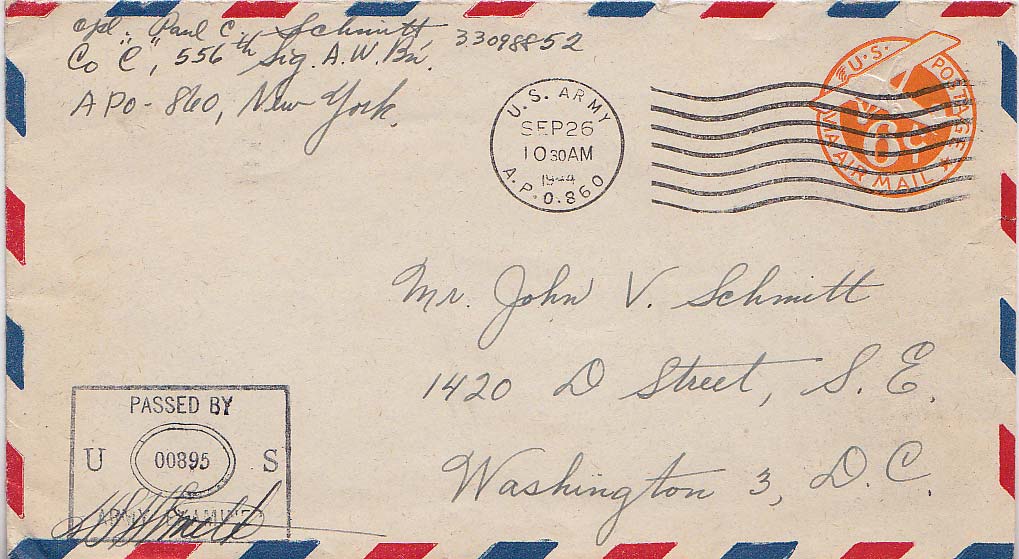 Cpl. Paul C. Schmitt 33098852
Co "C", 556th Sig. A.W. Bn.
APO-860, New York.
U.S. ARMY
SEP 26
10 30 AM
1944
A.P.O. 860
U.S. POSTAGE
6¢
VIA AIR MAIL
Mr. John V. Schmitt
1420 D Street, S.E.
Washington 3, D.C.
PASSED BY
U 00895 S
ARMY EXAMINER